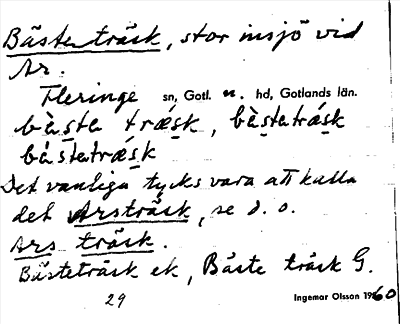 Bästeträsk, stor insjö vid
Ar.
Fleringe sn, Gotl. n. hd, Gotlands län.
bàsta trǽsk, bàstatrásk
bástatrǽsk
Det vanliga tycks vara att kalla
det Arsträsk, se d. o.
Ars träsk.
Bästeträsk ek, Bäste träsk G.
29 Ingemar Olsson 1960